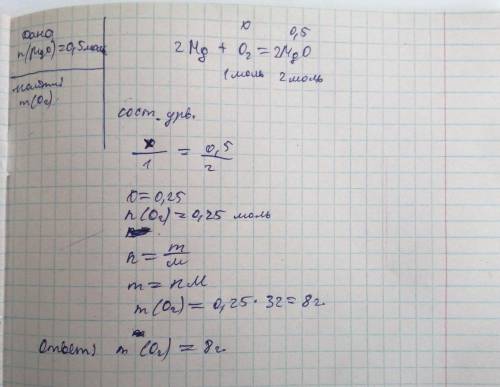 Дано
n(MgO)=0,5 моль
найти
m(O₂)
x 0,5
2Mg + O₂ = 2MgO
1 моль 2 моль
сост. урв.
x/1 = 0,5/2
x=0,25
n(O₂)=0,25 моль
n=m/M
m=nM
m(O₂)=0,25·32=8г.
Ответ: m(O₂)=8г.